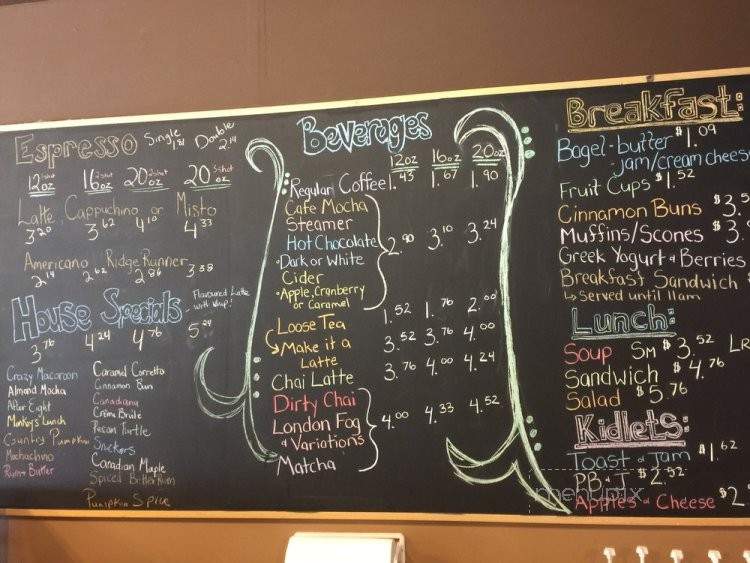 Espresso Single 1.81 Double 2.14
12oz 16oz 20oz 20oz
Latte, Cappuchino, or Misto
3.20 3.62 4.10 4.33
Americano Ridge Runner
2.14 2.62 2.86 3.38
House Specials
Flavoured Latte
with Whip!
3.76 4.24 4.76 5.24
Crazy Macaroon
Almond Mocha
After Eight
Monkey's Lunch
Country Pumpkin
Mochachino
Rum Butter
Caramel Corretto
Cinnamon Bun
Canadiana
Crème Brûlée
Pecan Turtle
Snickers
Canadian Maple
Spiced Butter Rum
Pumpkin Spice
Beverages
12oz 16oz 20oz
Regular Coffee 1.43 1.67 1.90
Cafe Mocha
Steamer
Hot Chocolate 2.90 3.10 3.24
• Dark or White
Cider
• Apple, Cranberry
or Caramel
Loose Tea 1.52 1.76 2.00
Make it a
Latte 3.52 3.76 4.00
Chai Latte 3.76 4.00 4.24
Dirty Chai
London Fog 4.00 4.33 4.52
& Variations
Matcha
Breakfast:
Bagel - butter $1.09
- jam/cream cheese
Fruit Cups $1.52
Cinnamon Buns $3.5
Muffins/Scones $3.
Greek Yogurt & Berries
Breakfast Sandwich
↳ Served until 11am
Lunch:
Soup Sm $3.52 LR
Sandwich $4.76
Salad $5.76
Kidlets:
Toast & Jam $1.62
PB & J $2.52
Apples & Cheese $2.
menupix